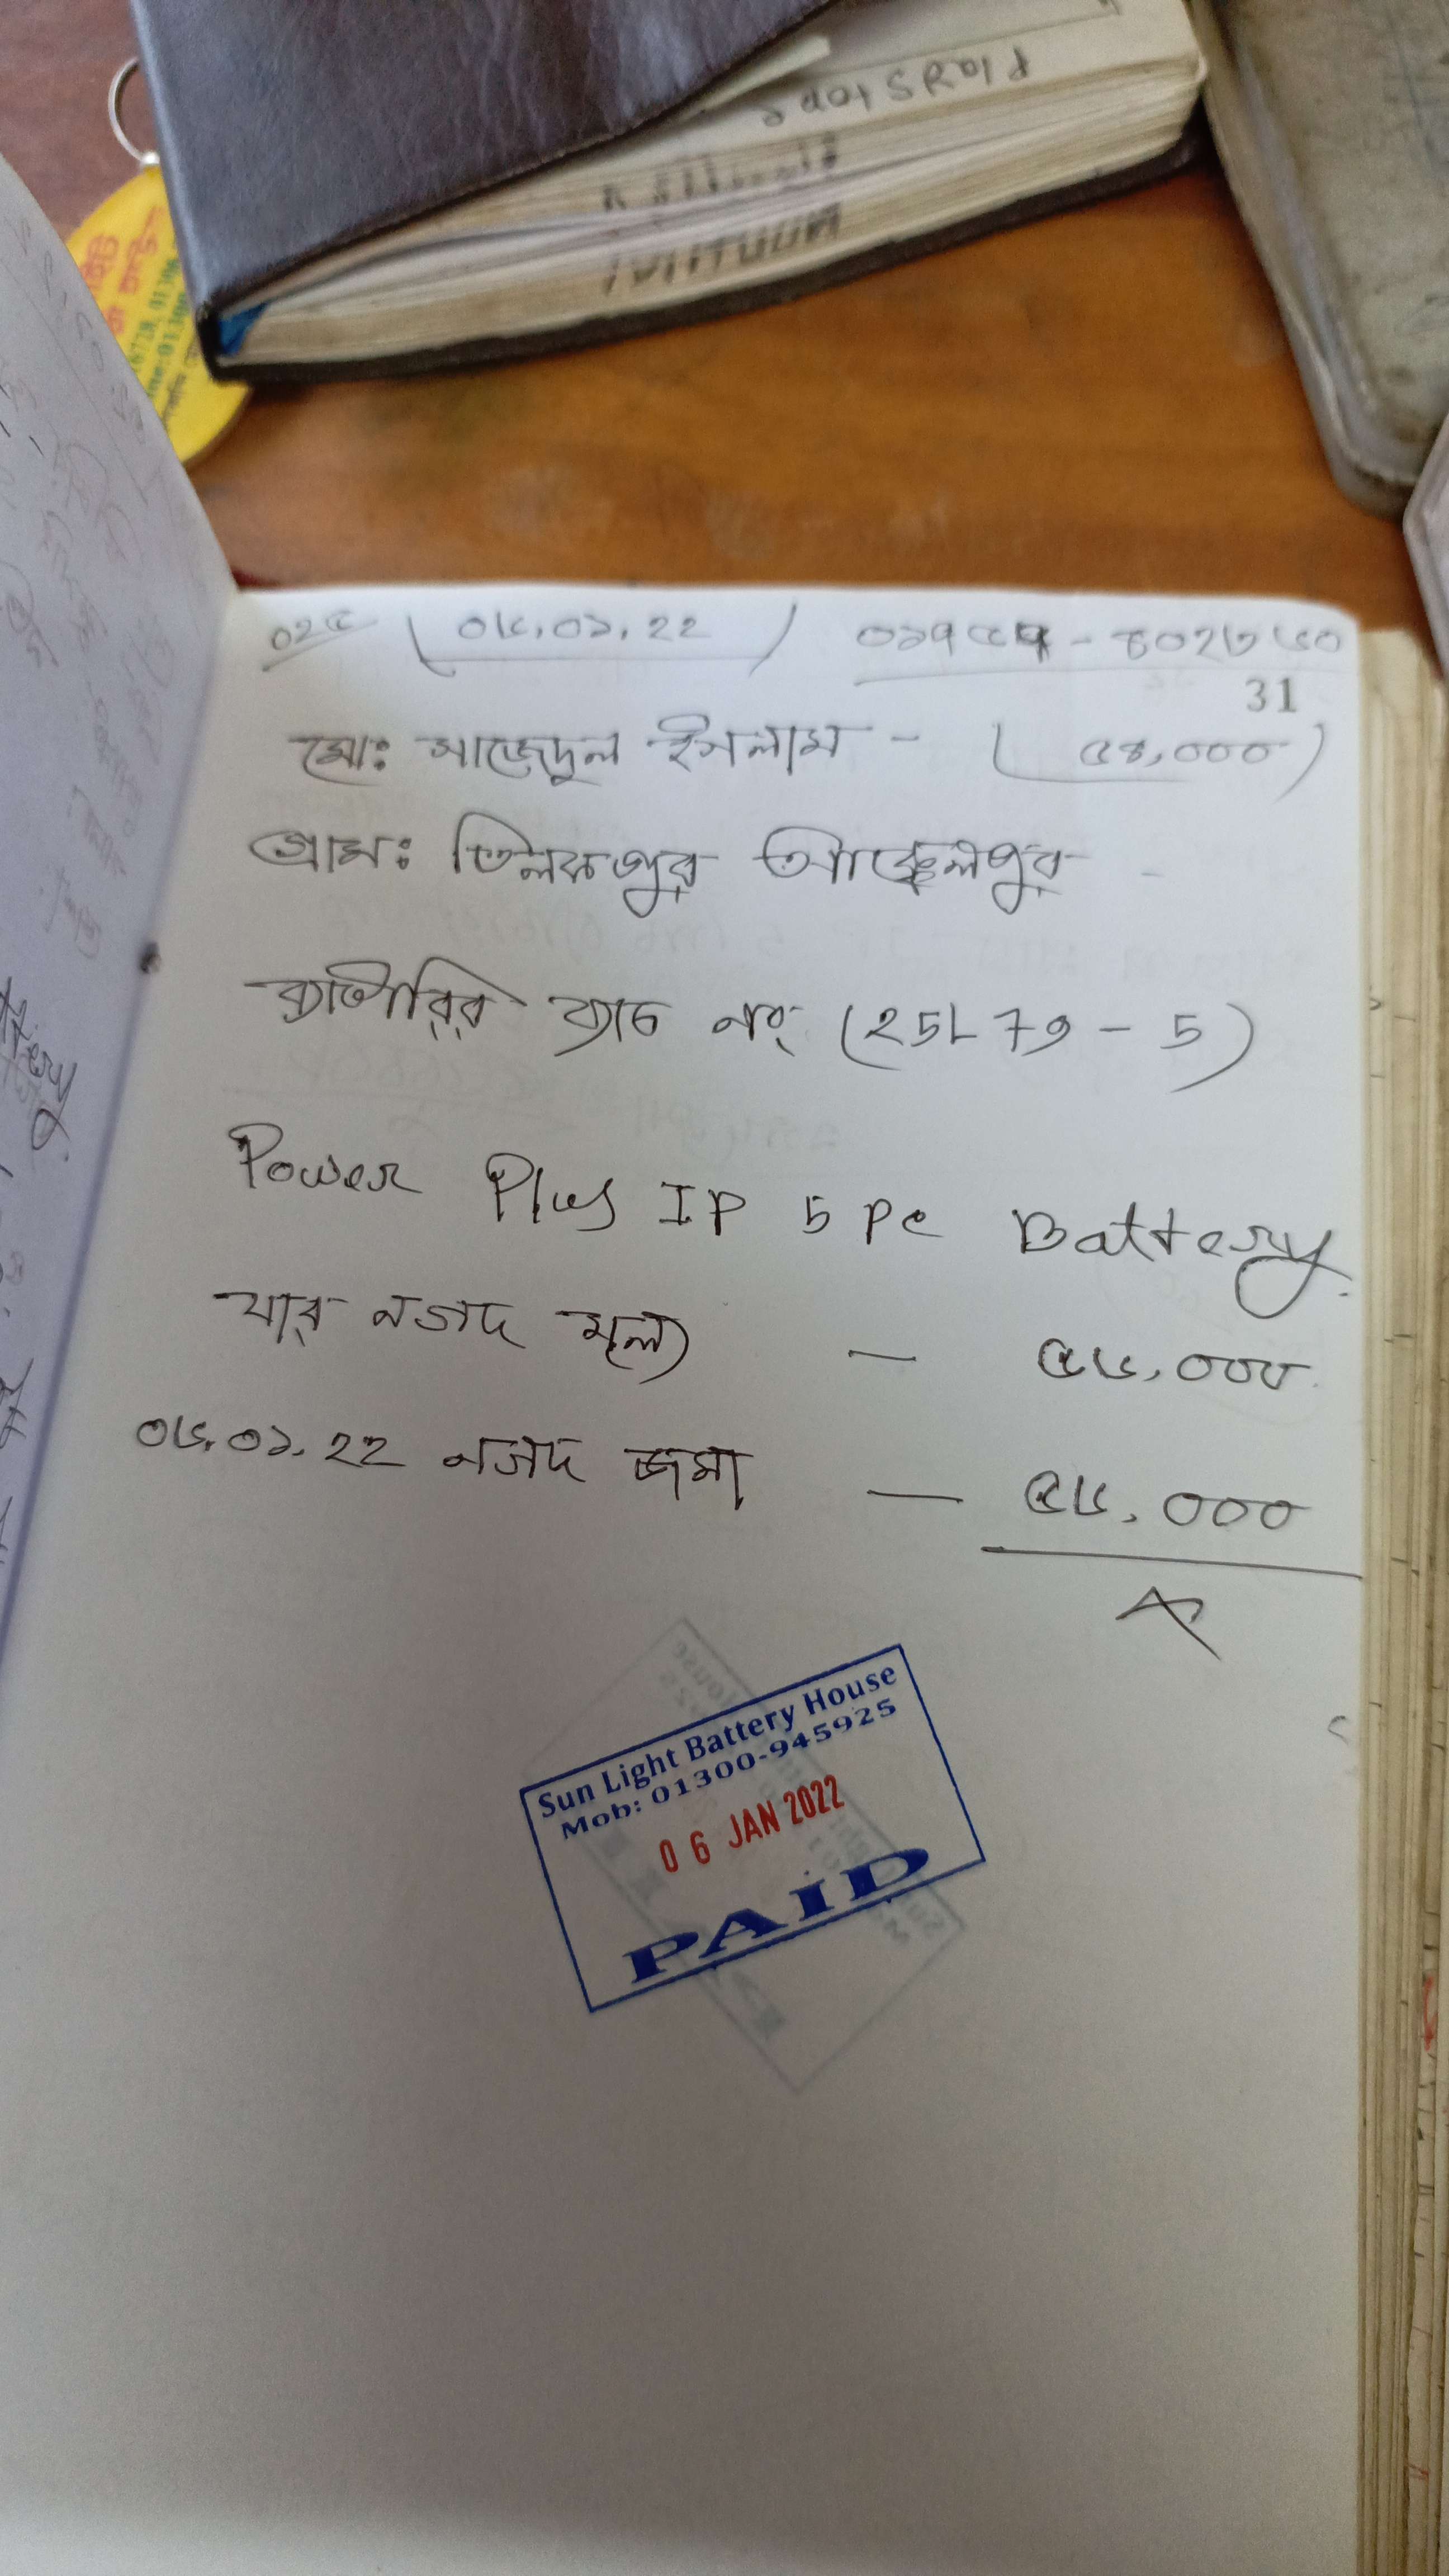 ০২৫ ০৬.০১.২২ ০১৭৫৭-৪০২৬৬০
31
মোঃ সাজেদুল ইসলাম - ৫৪,০০০
গ্রামঃ তিলকপুর আক্কেলপুর
ব্যাটারির ব্যাচ নং (25L79-5)
Power Plus IP 5 Pc Battery.
যার নগদ মূল্য — ৫৬,০০০
০৬.০১.২২ নগদ জমা — ৫৬,০০০
Sun Light Battery House
Mob: 01300-945925
06 JAN 2022
PAiD